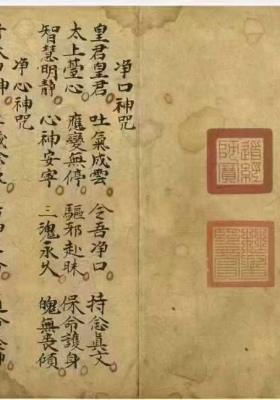 净口神咒
皇君皇君 吐氣成雲 令吾净口 持念真文
太上臺心 應變無停 驅邪赴昧 保命護身
智慧明静 心神安寧 三魂永久 魄無喪傾
净心神咒
道經師寶